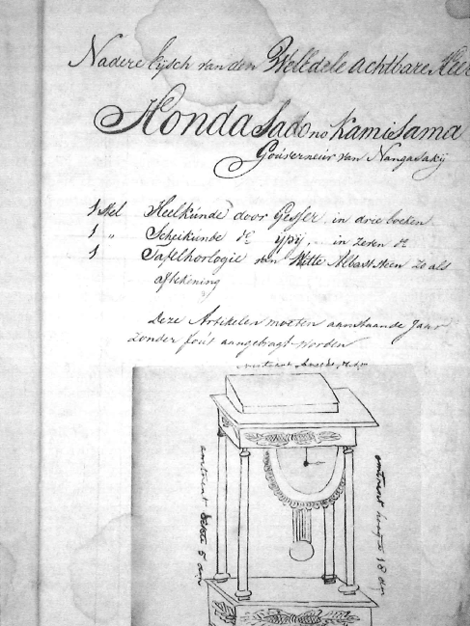 Nadere Eysch van den WelEdele achtbare Heer
Honda Sado no Kami Sama
Gouverneur van Nangasakij
1 stel Heelkunde door Gesser, in drie boeken
1 „ Scheikunde do ypij, .. in zeven do
1 Tafelhorlogie van Witte Albaststeen zo als
aftekening
Deze Artikelen moeten aanstaande Jaar
zonder fous aangebragt worden
omtrent
omtrent 5 dm
omtrent hoogte 18 dm